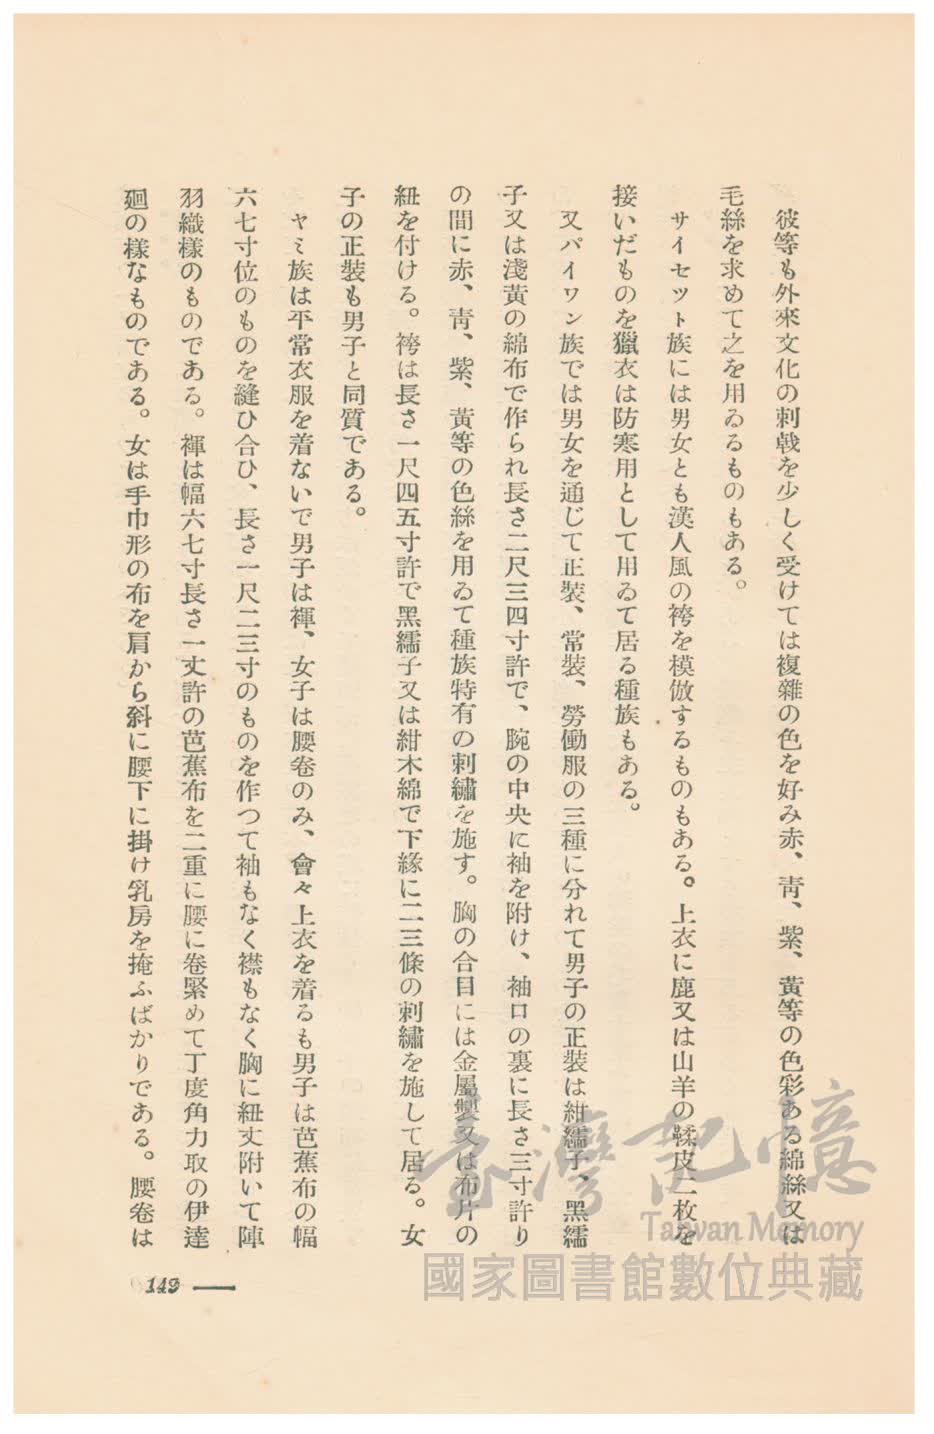 彼等も外來文化の刺戟を少しく受けては複雜の色を好み赤、靑、紫、黃等の色彩ある綿絲又は
毛絲を求めて之を用ゐるものもある。
サイセツト族には男女とも漢人風の袴を模倣するものもある。上衣に鹿又は山羊の鞣皮二枚を
接いだものを獵衣は防寒用として用ゐて居る種族もある。
又パイワン族では男女を通じて正裝、常裝、勞働服の三種に分れて男子の正裝は紺繻子、黑繻
子又は淺黃の綿布で作られ長さ二尺三四寸許で、腕の中央に袖を附け、袖口の裏に長さ三寸許り
の間に赤、靑、紫、黃等の色絲を用ゐて種族特有の刺繡を施す。胸の合目には金屬製又は布片の
紐を付ける。袴は長さ一尺四五寸許で黑繻子又は紺木綿で下緣に二三條の刺繡を施して居る。女
子の正裝も男子と同質である。
ヤミ族は平常衣服を着ないで男子は褌、女子は腰卷のみ、會々上衣を着るも男子は芭蕉布の幅
六七寸位のものを縫ひ合ひ、長さ一尺二三寸のものを作つて袖もなく襟もなく胸に紐丈附いて陣
羽織樣のものである。褌は幅六七寸長さ一丈許の芭蕉布を二重に腰に卷緊めて丁度角力取の伊達
廻の樣なものである。女は手巾形の布を肩から斜に腰下に掛け乳房を掩ふばかりである。腰卷は
149
臺灣記憶
Taiwan Memory
國家圖書館數位典藏